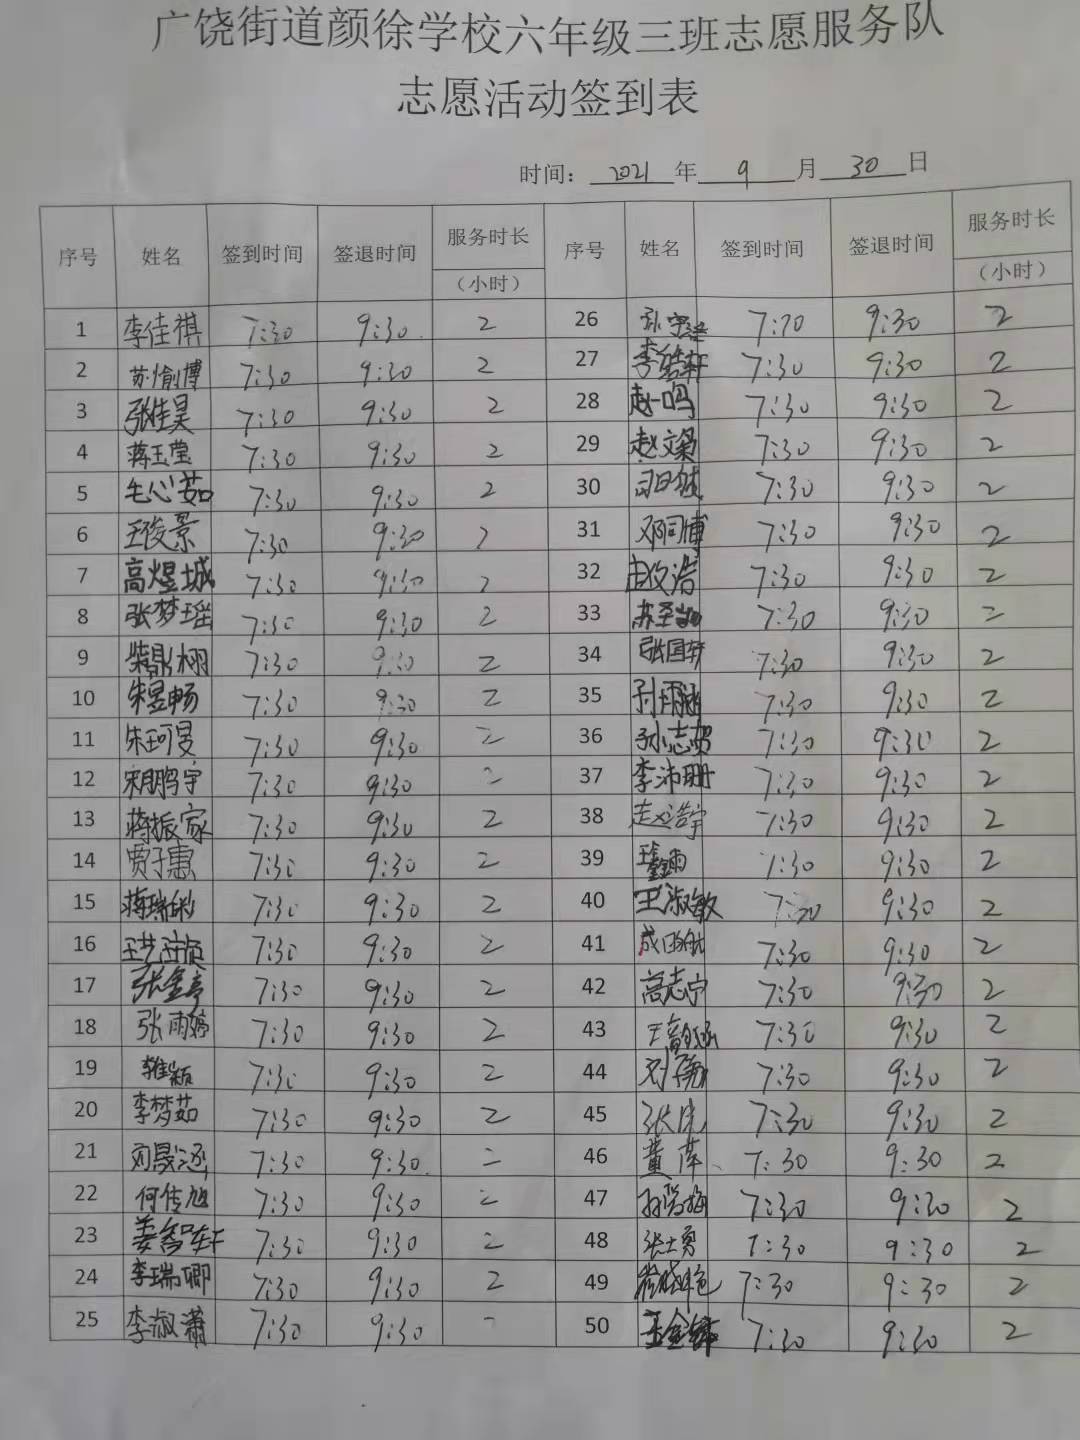 广饶街道颜徐学校六年级三班志愿服务队
志愿活动签到表
时间: 2021 年 9 月 30 日
序号 姓名 签到时间 签退时间 服务时长(小时) 序号 姓名 签到时间 签退时间 服务时长(小时)
1 李佳祺 7:30 9:30 2 26 7:30 9:30 2
2 苏愉博 7:30 9:30 2 27 李皓轩 7:30 9:30 2
3 张佳昊 7:30 9:30 2 28 赵一鸣 7:30 9:30 2
4 蒋玉莹 7:30 9:30 2 29 赵文燊 7:30 9:30 2
5 毛心茹 7:30 9:30 2 30 7:30 9:30 2
6 王俊景 7:30 9:30 2 31 邓同博 7:30 9:30 2
7 高煜城 7:30 9:30 2 32 7:30 9:30 2
8 张梦瑶 7:30 9:30 2 33 7:30 9:30 2
9 柴鼎栩 7:30 9:30 2 34 张国轩 7:30 9:30 2
10 朱昱畅 7:30 9:30 2 35 7:30 9:30 2
11 朱珂旻 7:30 9:30 2 36 孙志贺 7:30 9:30 2
12 宋鹏宇 7:30 9:30 2 37 李沛珊 7:30 9:30 2
13 蒋振家 7:30 9:30 2 38 赵浩宇 7:30 9:30 2
14 贾子惠 7:30 9:30 2 39 7:30 9:30 2
15 7:30 9:30 2 40 王淑敏 7:30 9:30 2
16 7:30 9:30 2 41 7:30 9:30 2
17 张金亭 7:30 9:30 2 42 高志宁 7:30 9:30 2
18 张雨婷 7:30 9:30 2 43 7:30 9:30 2
19 7:30 9:30 2 44 7:30 9:30 2
20 李梦茹 7:30 9:30 2 45 7:30 9:30 2
21 刘晟涵 7:30 9:30 2 46 董萍 7:30 9:30 2
22 何传旭 7:30 9:30 2 47 7:30 9:30 2
23 姜智轩 7:30 9:30 2 48 张士勇 7:30 9:30 2
24 李瑞卿 7:30 9:30 2 49 7:30 9:30 2
25 李淑潇 7:30 9:30 50 7:30 9:30 2